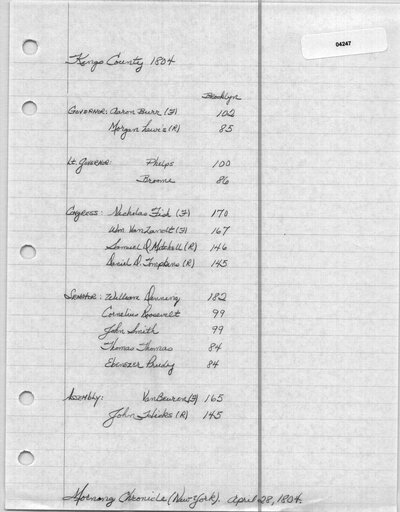 04247
Kings County 1804
Brooklyn
Governor: Aaron Burr (F) 102
Morgan Lewis (R) 85
Lt. Governor: Phelps 100
Broome 86
Congress: Nicholas Fish (F) 170
Wm Van Zandt (F) 167
Samuel D Mitchell (R) 146
Daniel D. Tompkins (R) 145
Senator: William Denning 182
Cornelius Roosevelt 99
John Smith 99
Thomas Thomas 84
Ebenezer Purdy 84
Assembly: Van Beuren (F) 165
John Hicks (R) 145
Morning Chronicle (New York). April 28, 1804.